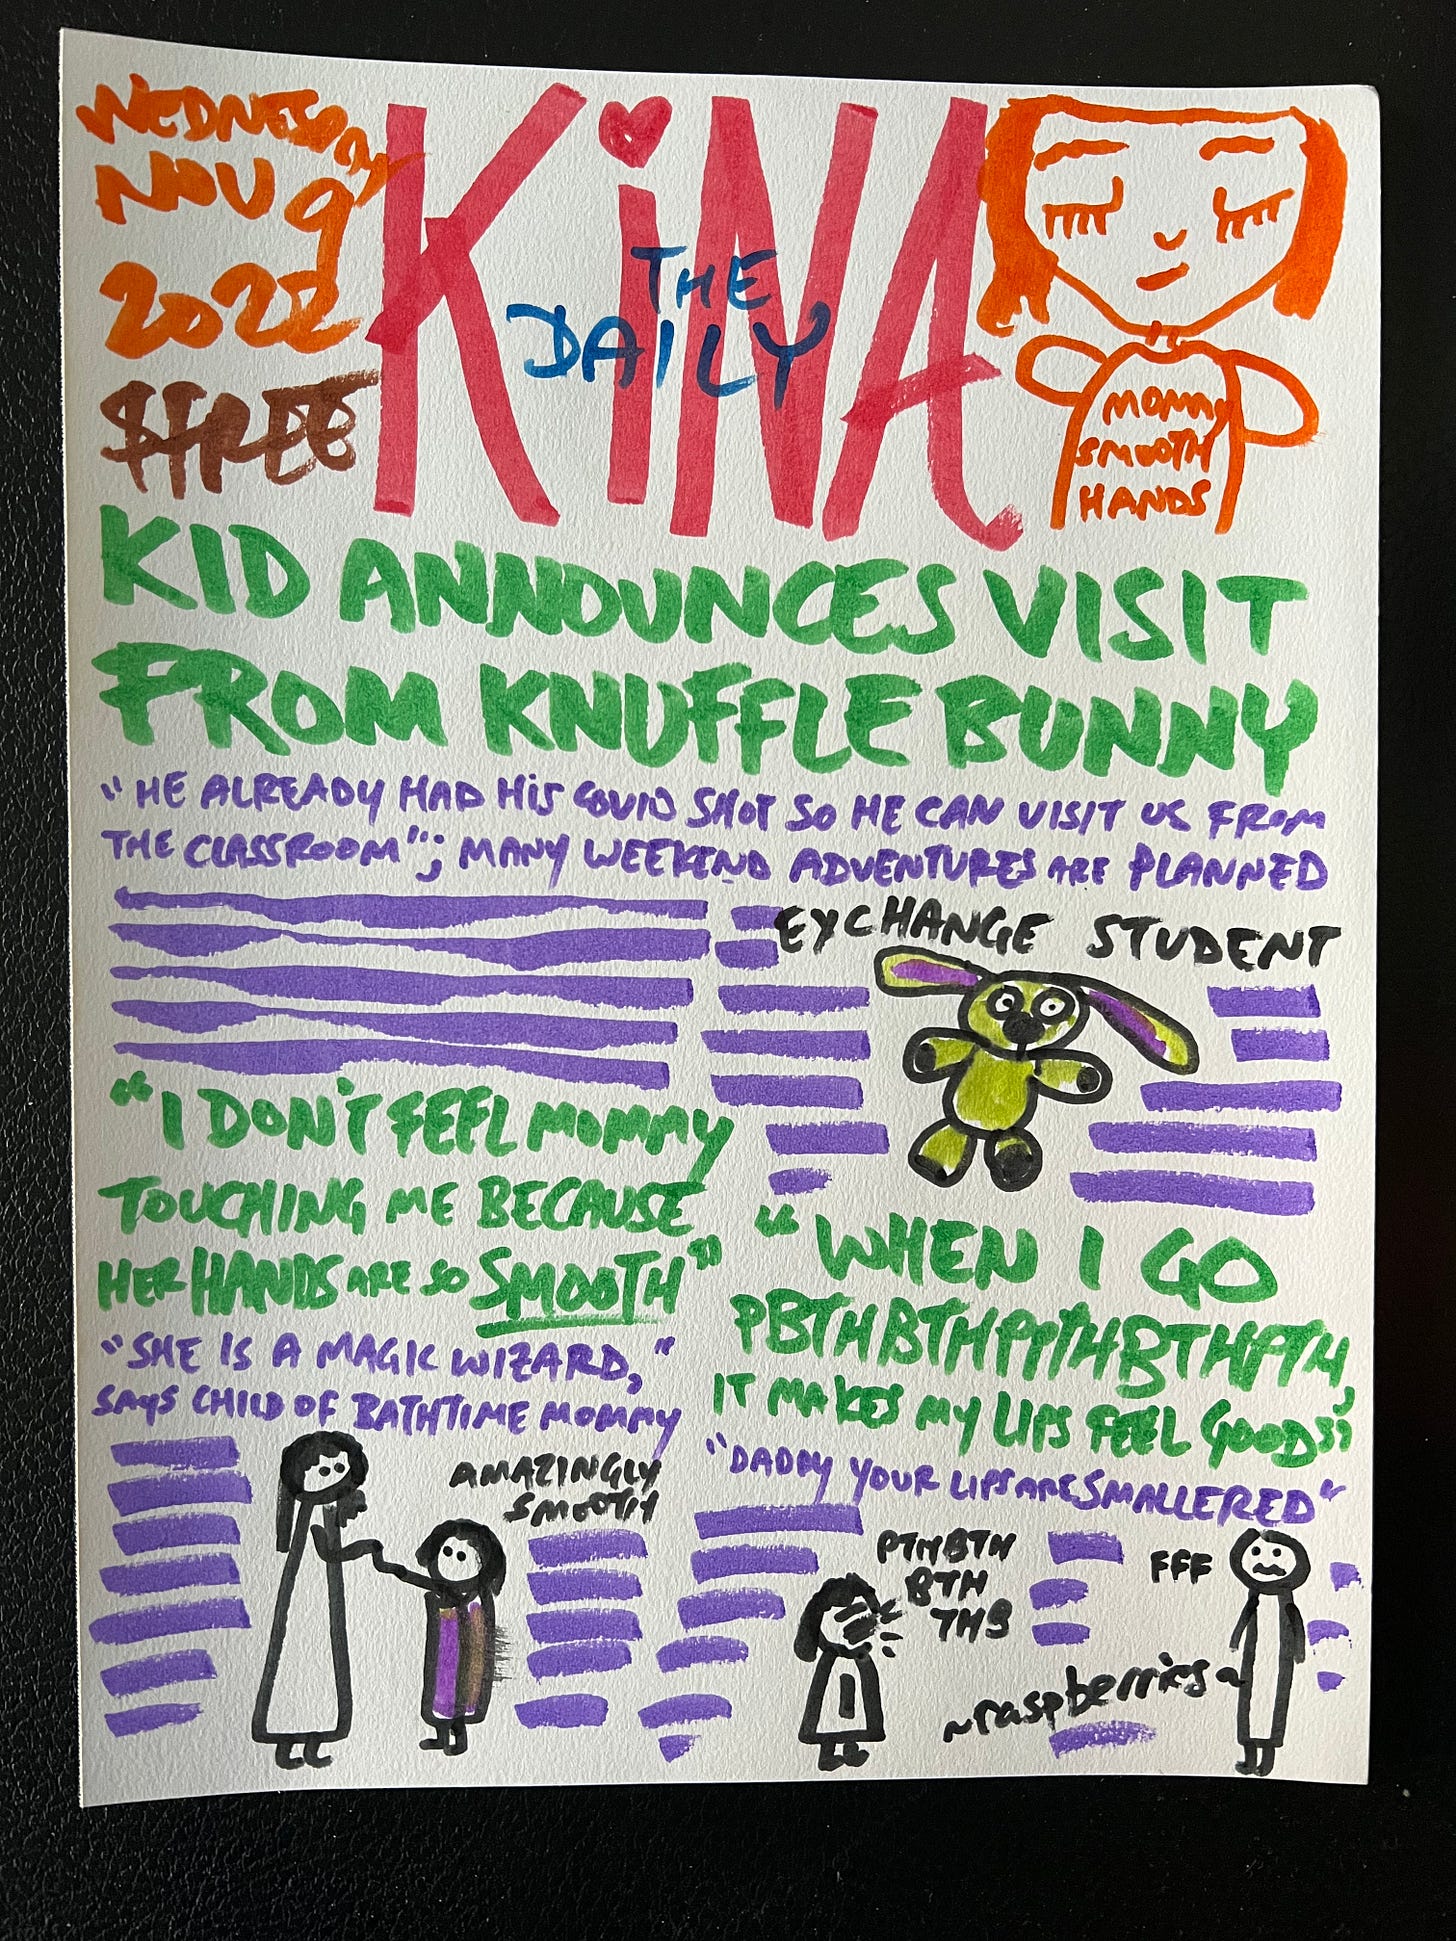 WEDNESDAY
NOV 9
2022
$FREE
THE
DAILY
KiNA
MOMMY
SMOOTH
HANDS
KID ANNOUNCES VISIT
FROM KNUFFLE BUNNY
"HE ALREADY HAD HiS COVID SHOT SO HE CAN VISIT US FROM
THE CLASSROOM"; MANY WEEKEND ADVENTURES ARE PLANNED
EXCHANGE STUDENT
"I DON'T FEEL MOMMY
TOUCHING ME BECAUSE
HER HANDS ARE SO SMOOTH"
"SHE IS A MAGIC WIZARD,"
SAYS CHILD OF BATHTIME MOMMY
AMAZINGLY
SMOOTH
"WHEN I GO
PBTHBTHPPTHBTHPTH,
IT MAKES MY LIPS FEEL GOOD"
"DADDY YOUR LIPS ARE SMALLERED"
PTHBTH
BTH
THB
FFF
~raspberries~